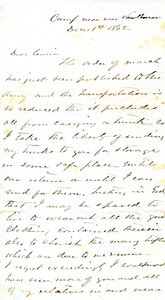 Camp near New Haven
Decr 1st 1862
Dear Cousin
The order of march
has just been published to the
army and the transportation is
so reduced that it precludes
all from carrying a trunk. So
I take the liberty of sending
my trunk to you for storage
in some safe place until
our return or until I can
send for them, hoping in God
that I may be spared to
live to wear out all the good
Clothing contained therein
also to cherish the many gifts
which are dear to me
I regret exceedingly I could not
have seen more of you and all
of my relations in and near